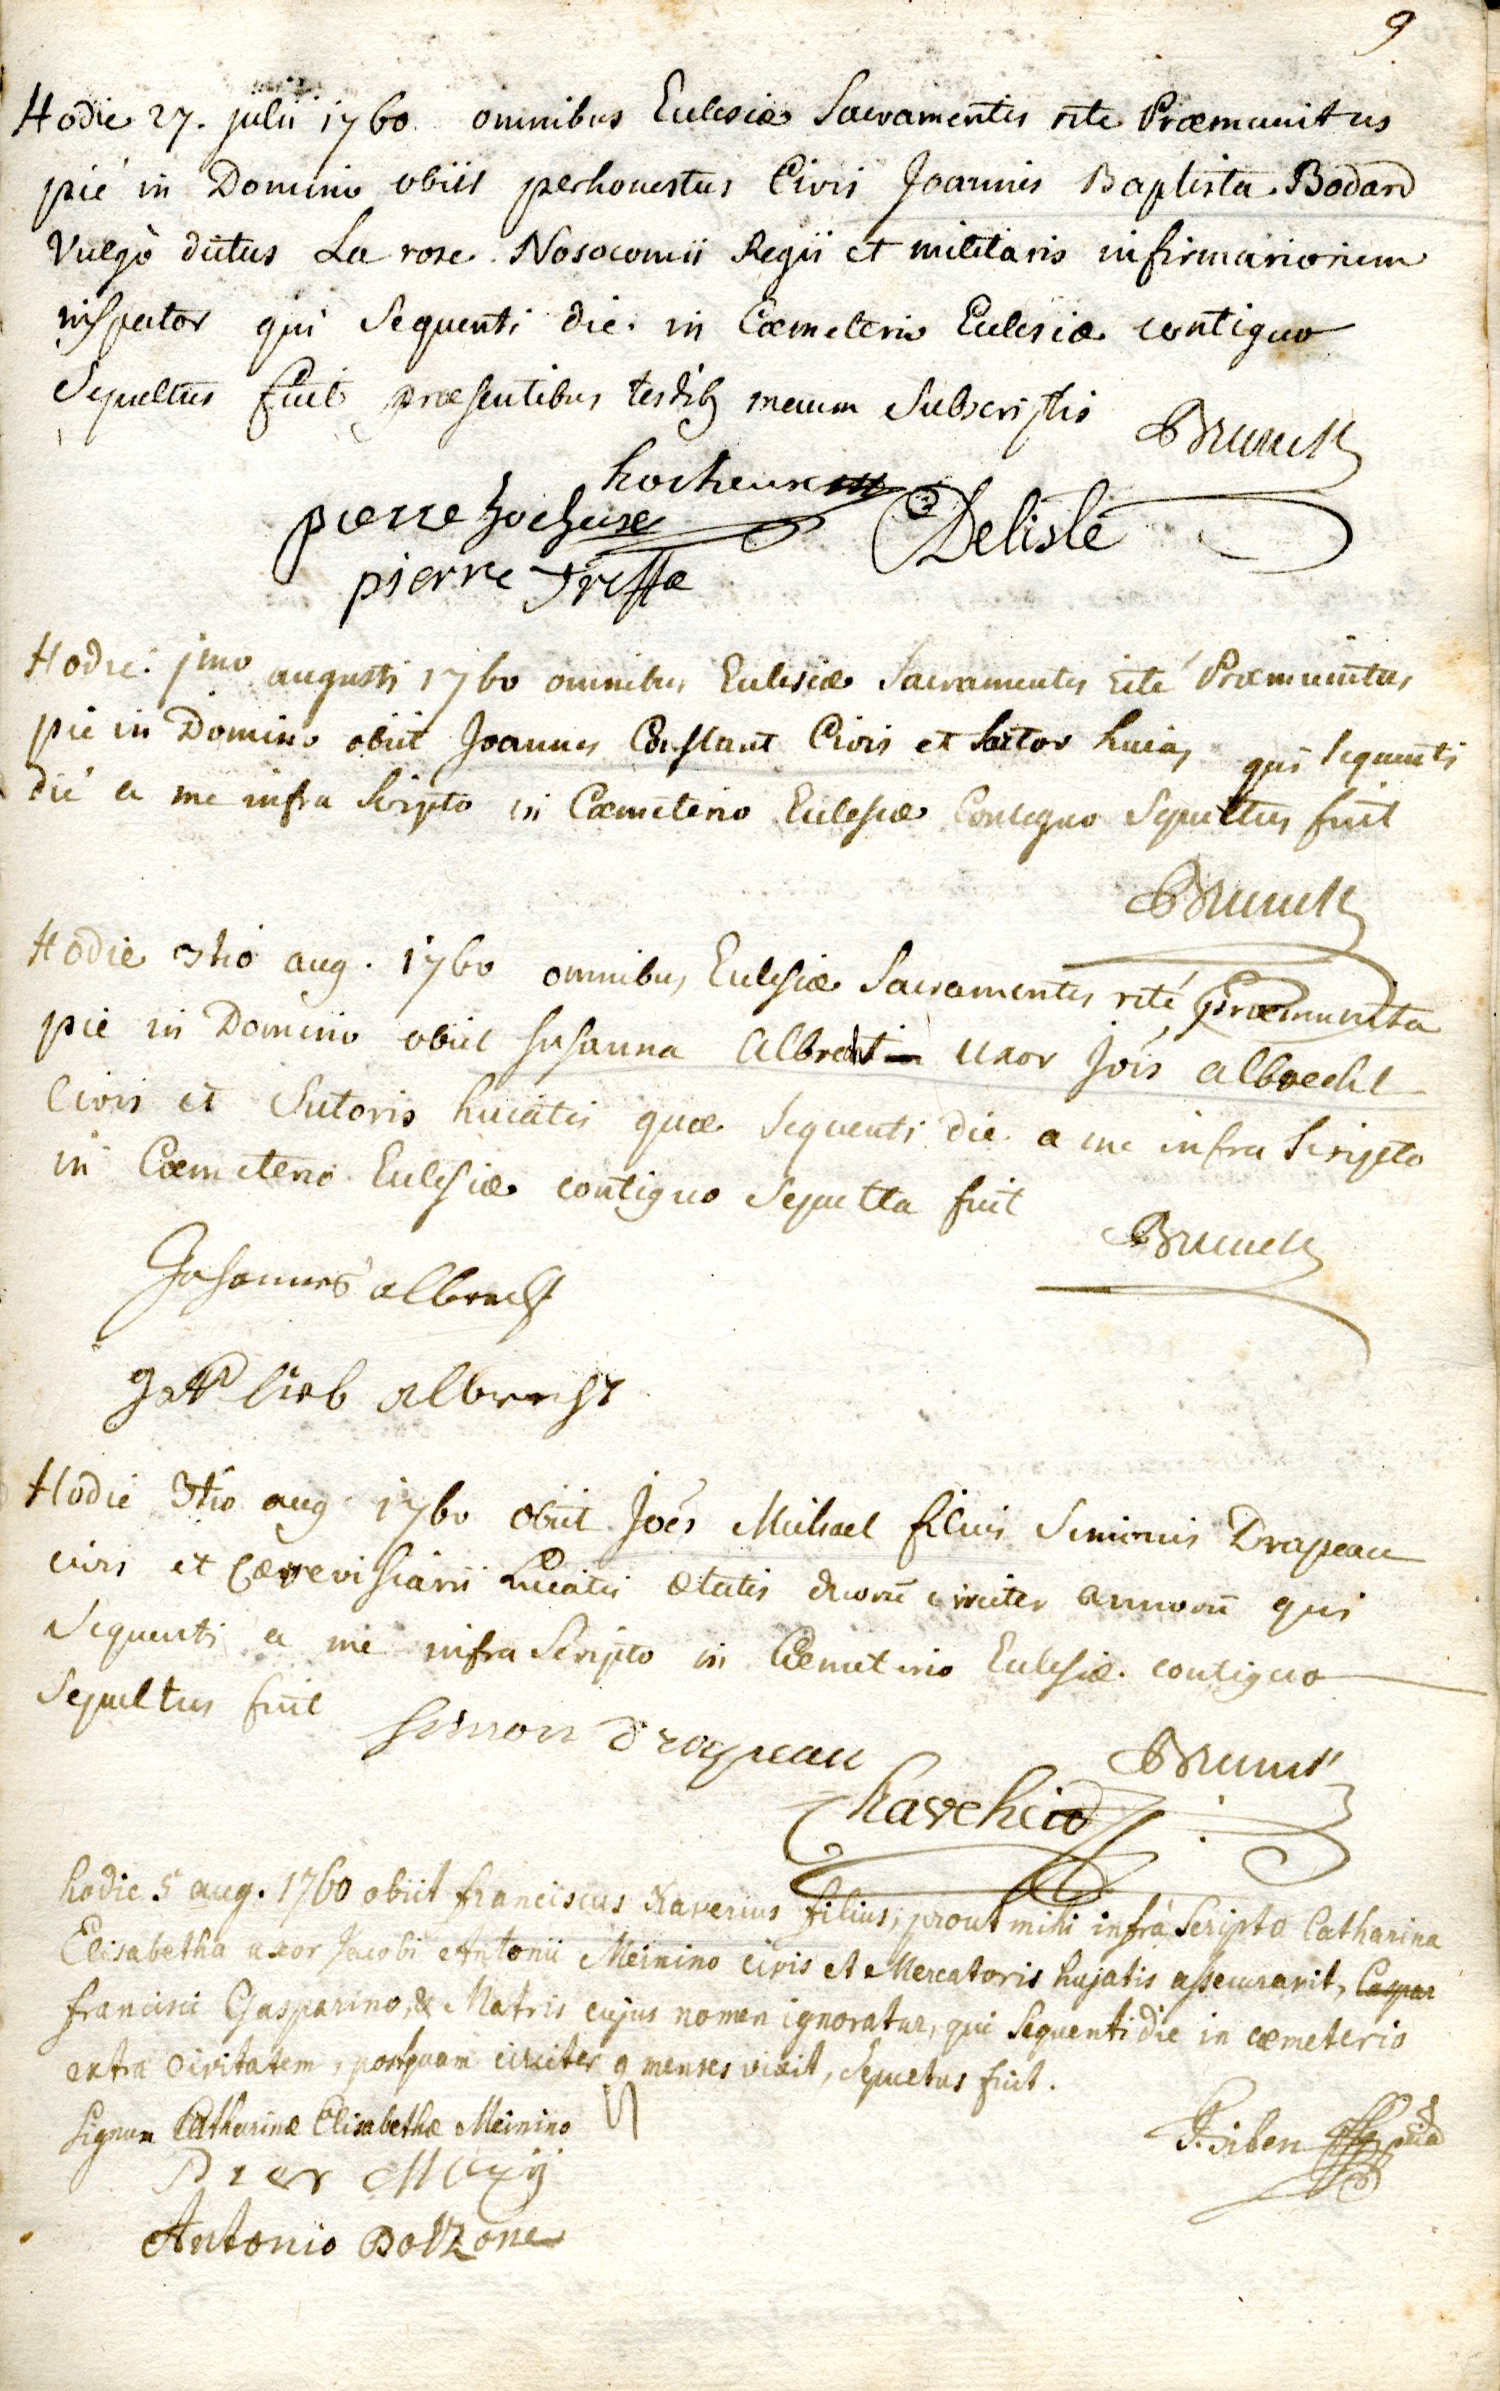 9
Hodie 27. julii 1760 omnibus Eclesiæ Sacramentis rite Præmunitus
pié in Domino obiit perhonestus Civis Joannis Baptista Bodard
Vulgò dictus La rose Nosocomii Regii et militaris infirmariorum
inspector qui Sequenti die in Cœmeterio Eclesiæ contiguo
Sepultus fuit præsentibus testib9 mecum Subscriptis Brunck
hocheux
pierre hocheuse Delisle
pierre Treffe
Hodie jmo augusti 1760 omnibus Eclesiæ Sacramentis rité Præmunitus
pié in Domino obiit Joannes Constant Civis et Sartor huias qui sequenti
dié a me infra Scripto in Cœmeterio Eclesiæ Contiguo Sepultus fuit
Brunck
Hodie 3tio aug. 1760 omnibus Eclesiæ Sacramentis rité præmunita
pié in Domino obiit Susanna Albrecht uxor Jois albrecht
Civis et Sutoris huiatis quæ Sequenti die a me infra Scripto
in Cœmeterio Eclesiæ contiguo Sepulta fuit Brunck
Johannes albrecht
gottlieb albrecht
Hodie 3tio aug 1760 obiit Joes Michael filius Simonis Drapeau
civis et Cærevisiarii huiatis ætatis duorū circiter annorū qui
Sequenti a me infra Scripto in Cœmeterio Eclesiæ contiguo
Sepultus fuit simon drapeau Brunck
hodie 5 aug. 1760 obiit franciscus Xaverius filius, prout mihi infrà Scripto Catharina
Elisabetha uxor Jacobi Antonii Meinino civis et Mercatoris hujatis assecuravit, Caspar
francisci Gasparino, & Matris cujus nomen ignoratur, qui Sequenti die in cœmeterio
extra Civitatem, postquam circiter 9 menses vixit, Sepultus fuit.
Signum Catharinæ Elisabethæ Meinino
Antonio Bolzone